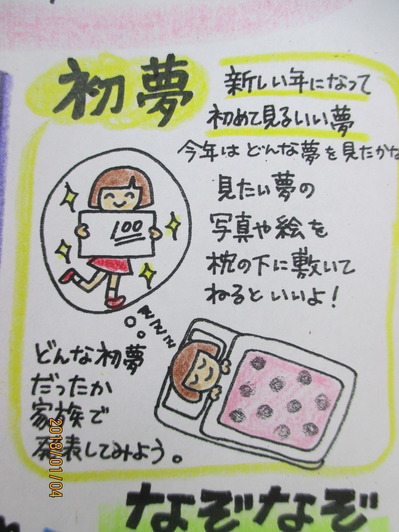 初夢
新しい年になって
初めて見るいい夢
今年はどんな夢を見たかな
見たい夢の
写真や絵を
枕の下に敷いて
ねるといいよ！
100
zzzz
どんな初夢
だったか
家族で
発表してみよう。
2018/01/04
なぞなぞ